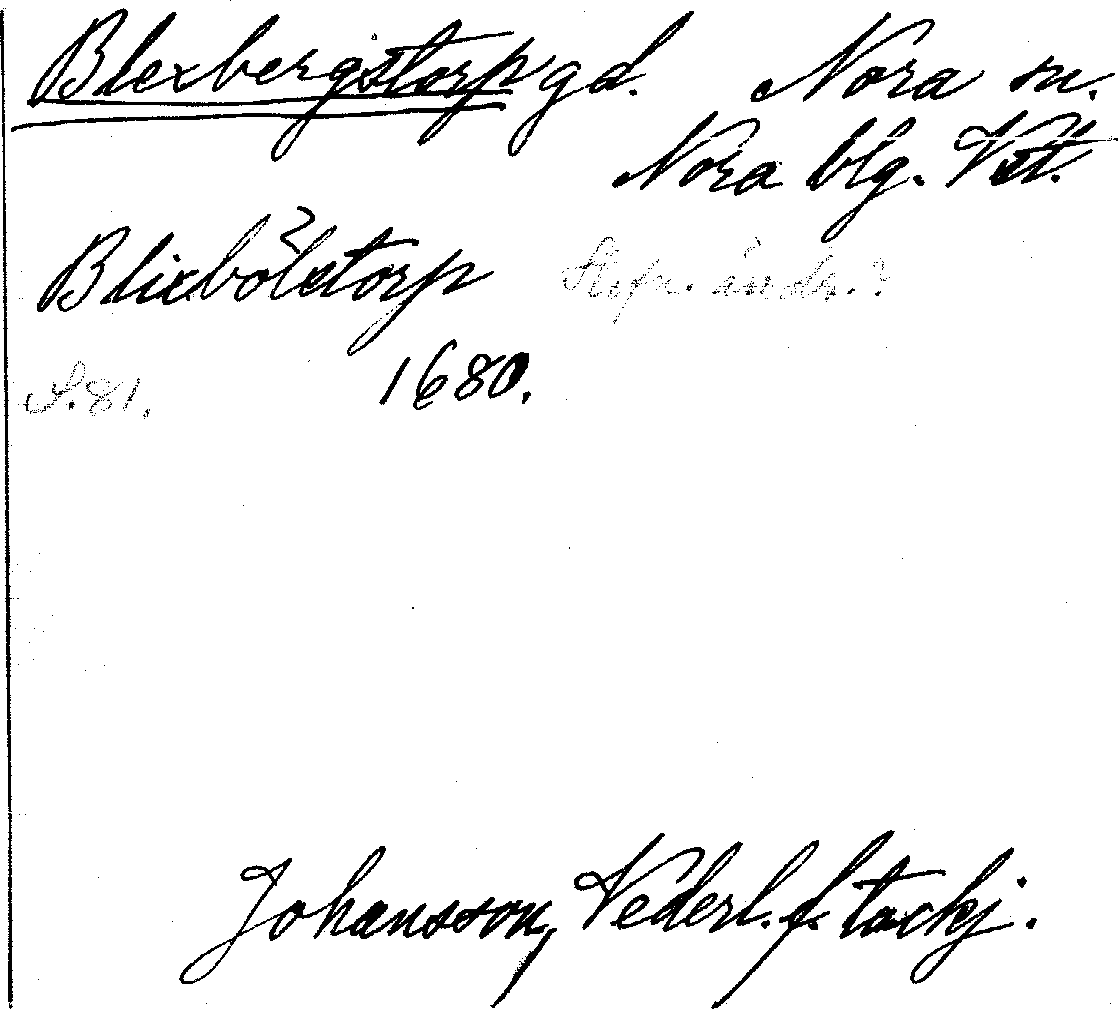 Blexbergstorp gd. Nora sn.
Nora blg. Vstl.
Blixbölstorp
S. 81. 1680.
Johansson, Vederl. f. tackj.